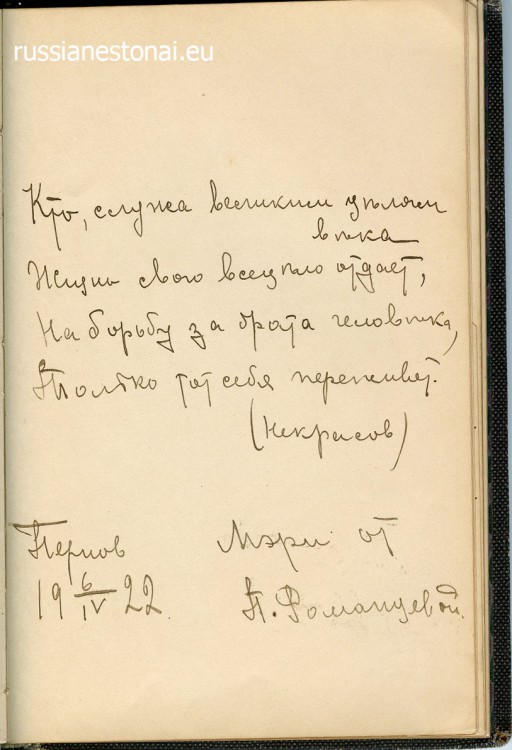 russianestonai.eu
Кто, служа великим цѣлям
вѣка
Жизнь свою всецѣло отдает,
На борьбу за брата человѣка,
Только тот себя переживет.
(Некрасов)
Пернов
Мэри от
19 6/IV 22.
П. Романцевой.